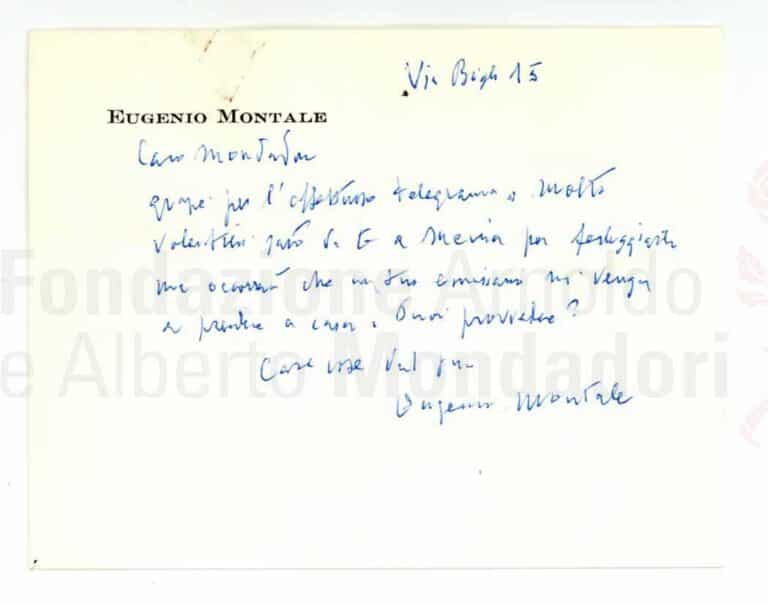 Via Bigli 15
EUGENIO MONTALE
Caro Mondador
grazie per l'affettuoso telegramma. Molto
volentieri sarò da te a Meina per festeggiarti
ma occorrerà che un tuo emissario mi venga
a prendere a casa. Puoi provvedere?
Care cose dal tuo
Eugenio Montale
Fondazione Arnoldo
e Alberto Mondadori